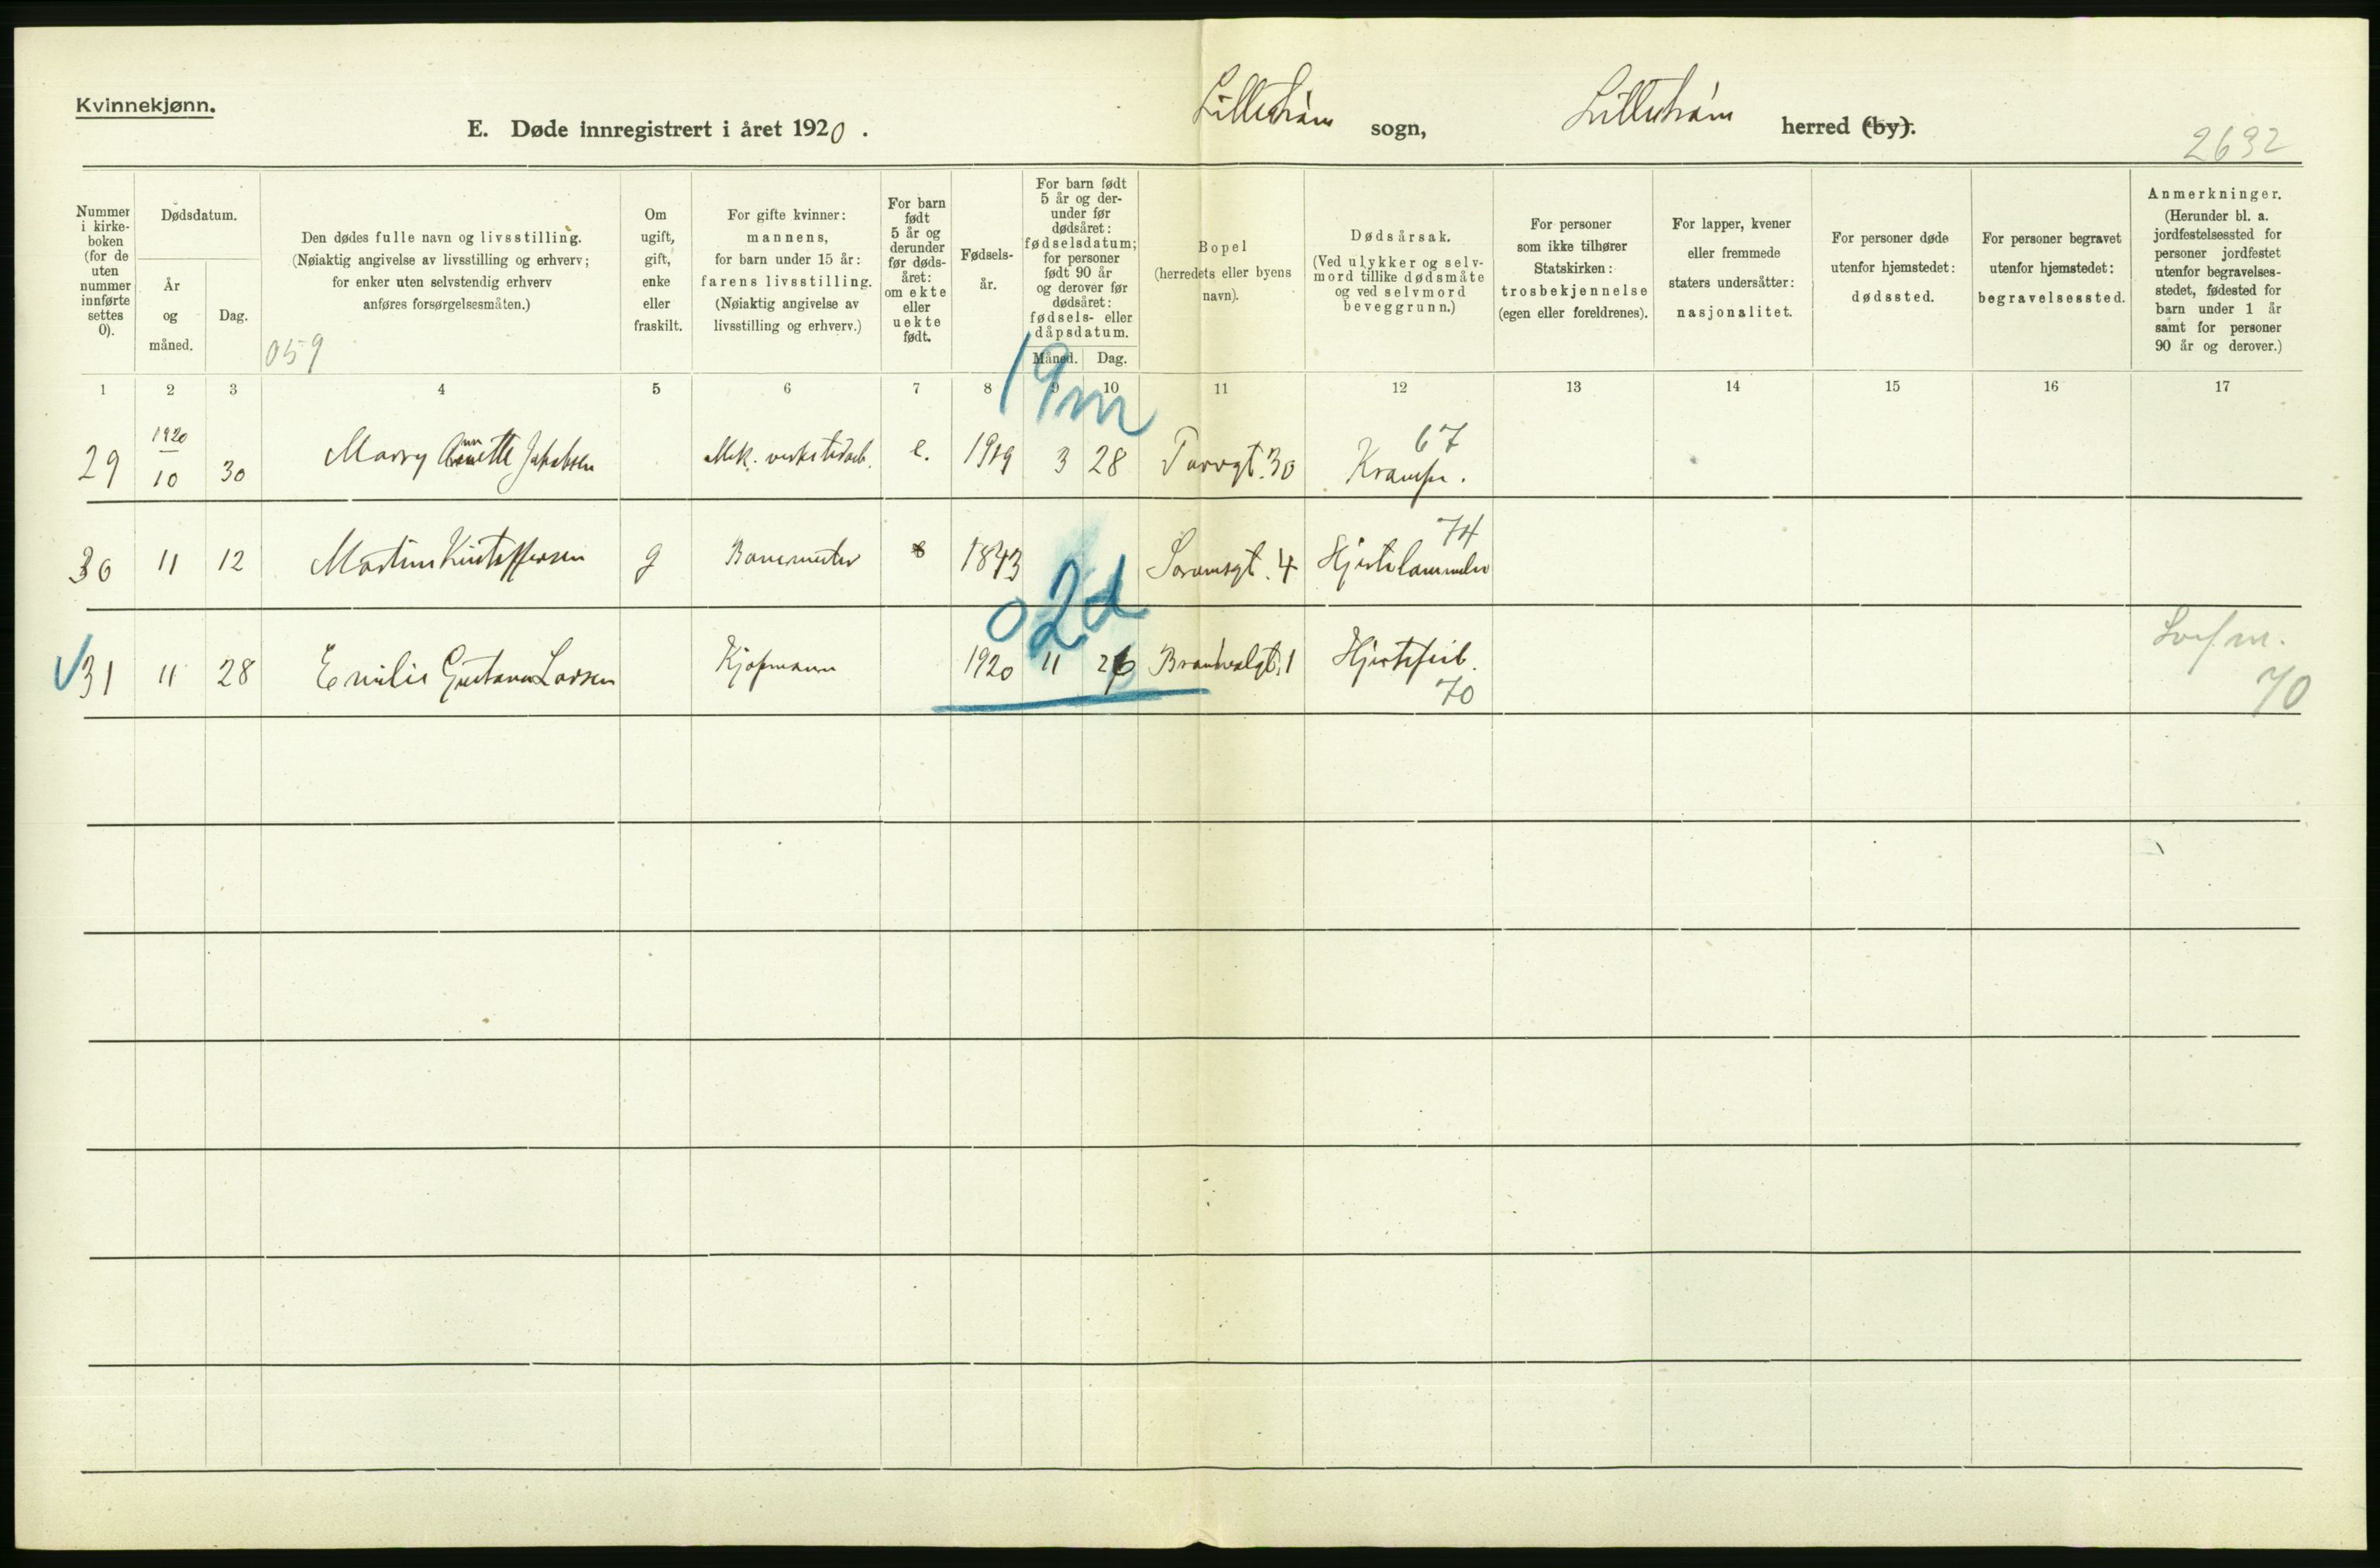 Kvinnekjønn.
E. Døde innregistrert i året 1920.
Lillestrøm sogn, Lillestrøm herred (by).
2632
Nummer i kirke-boken (for de uten nummer innførte settes 0).
Dødsdatum.
År og måned.
Dag.
Den dødes fulle navn og livsstilling.
(Nøiaktig angivelse av livsstilling og erhverv;
for enker uten selvstendig erhverv
anføres forsørgelsesmåten.)
059
Om ugift, gift, enke eller fraskilt.
For gifte kvinner:
mannens,
for barn under 15 år:
farens livsstilling.
(Nøiaktig angivelse av
livsstilling og erhverv.)
For barn født 5 år og derunder før døds-året: om ekte eller uekte født.
Fødsels-år.
For barn født
5 år og der-
under før
dødsåret:
fødselsdatum;
for personer
født 90 år
og derover før
dødsåret:
fødsels- eller
dåpsdatum.
Måned. Dag.
Bopel
(herredets eller byens
navn).
Dødsårsak.
(Ved ulykker og selv-
mord tillike dødsmåte
og ved selvmord
beveggrunn.)
For personer
som ikke tilhører
Statskirken:
trosbekjennelse
(egen eller foreldrenes).
For lapper, kvener
eller fremmede
staters undersåtter:
nasjonalitet.
For personer døde
utenfor hjemstedet:
dødssted.
For personer begravet
utenfor hjemstedet:
begravelsessted.
Anmerkninger.
(Herunder bl. a.
jordfestelsessted for
personer jordfestet
utenfor begravelses-
stedet, fødested for
barn under 1 år
samt for personer
90 år og derover.)
1 2 3 4 5 6 7 8 9 10 11 12 13 14 15 16 17
19m
1920
67
29 10 30 Marry Annette Jakobsen Mek. verkstedarb. e. 1919 3 28 Torvgt. 30 Krampe.
74
30 11 12 Martine Kristoffersen g Banemester 1843 4 Hjertelammelse
0 2d
31 11 28 Emilie Gustava Larsen Kjøpmann 1920 11 26 Brandvalgt. 1 Hjertefeil.
70
70